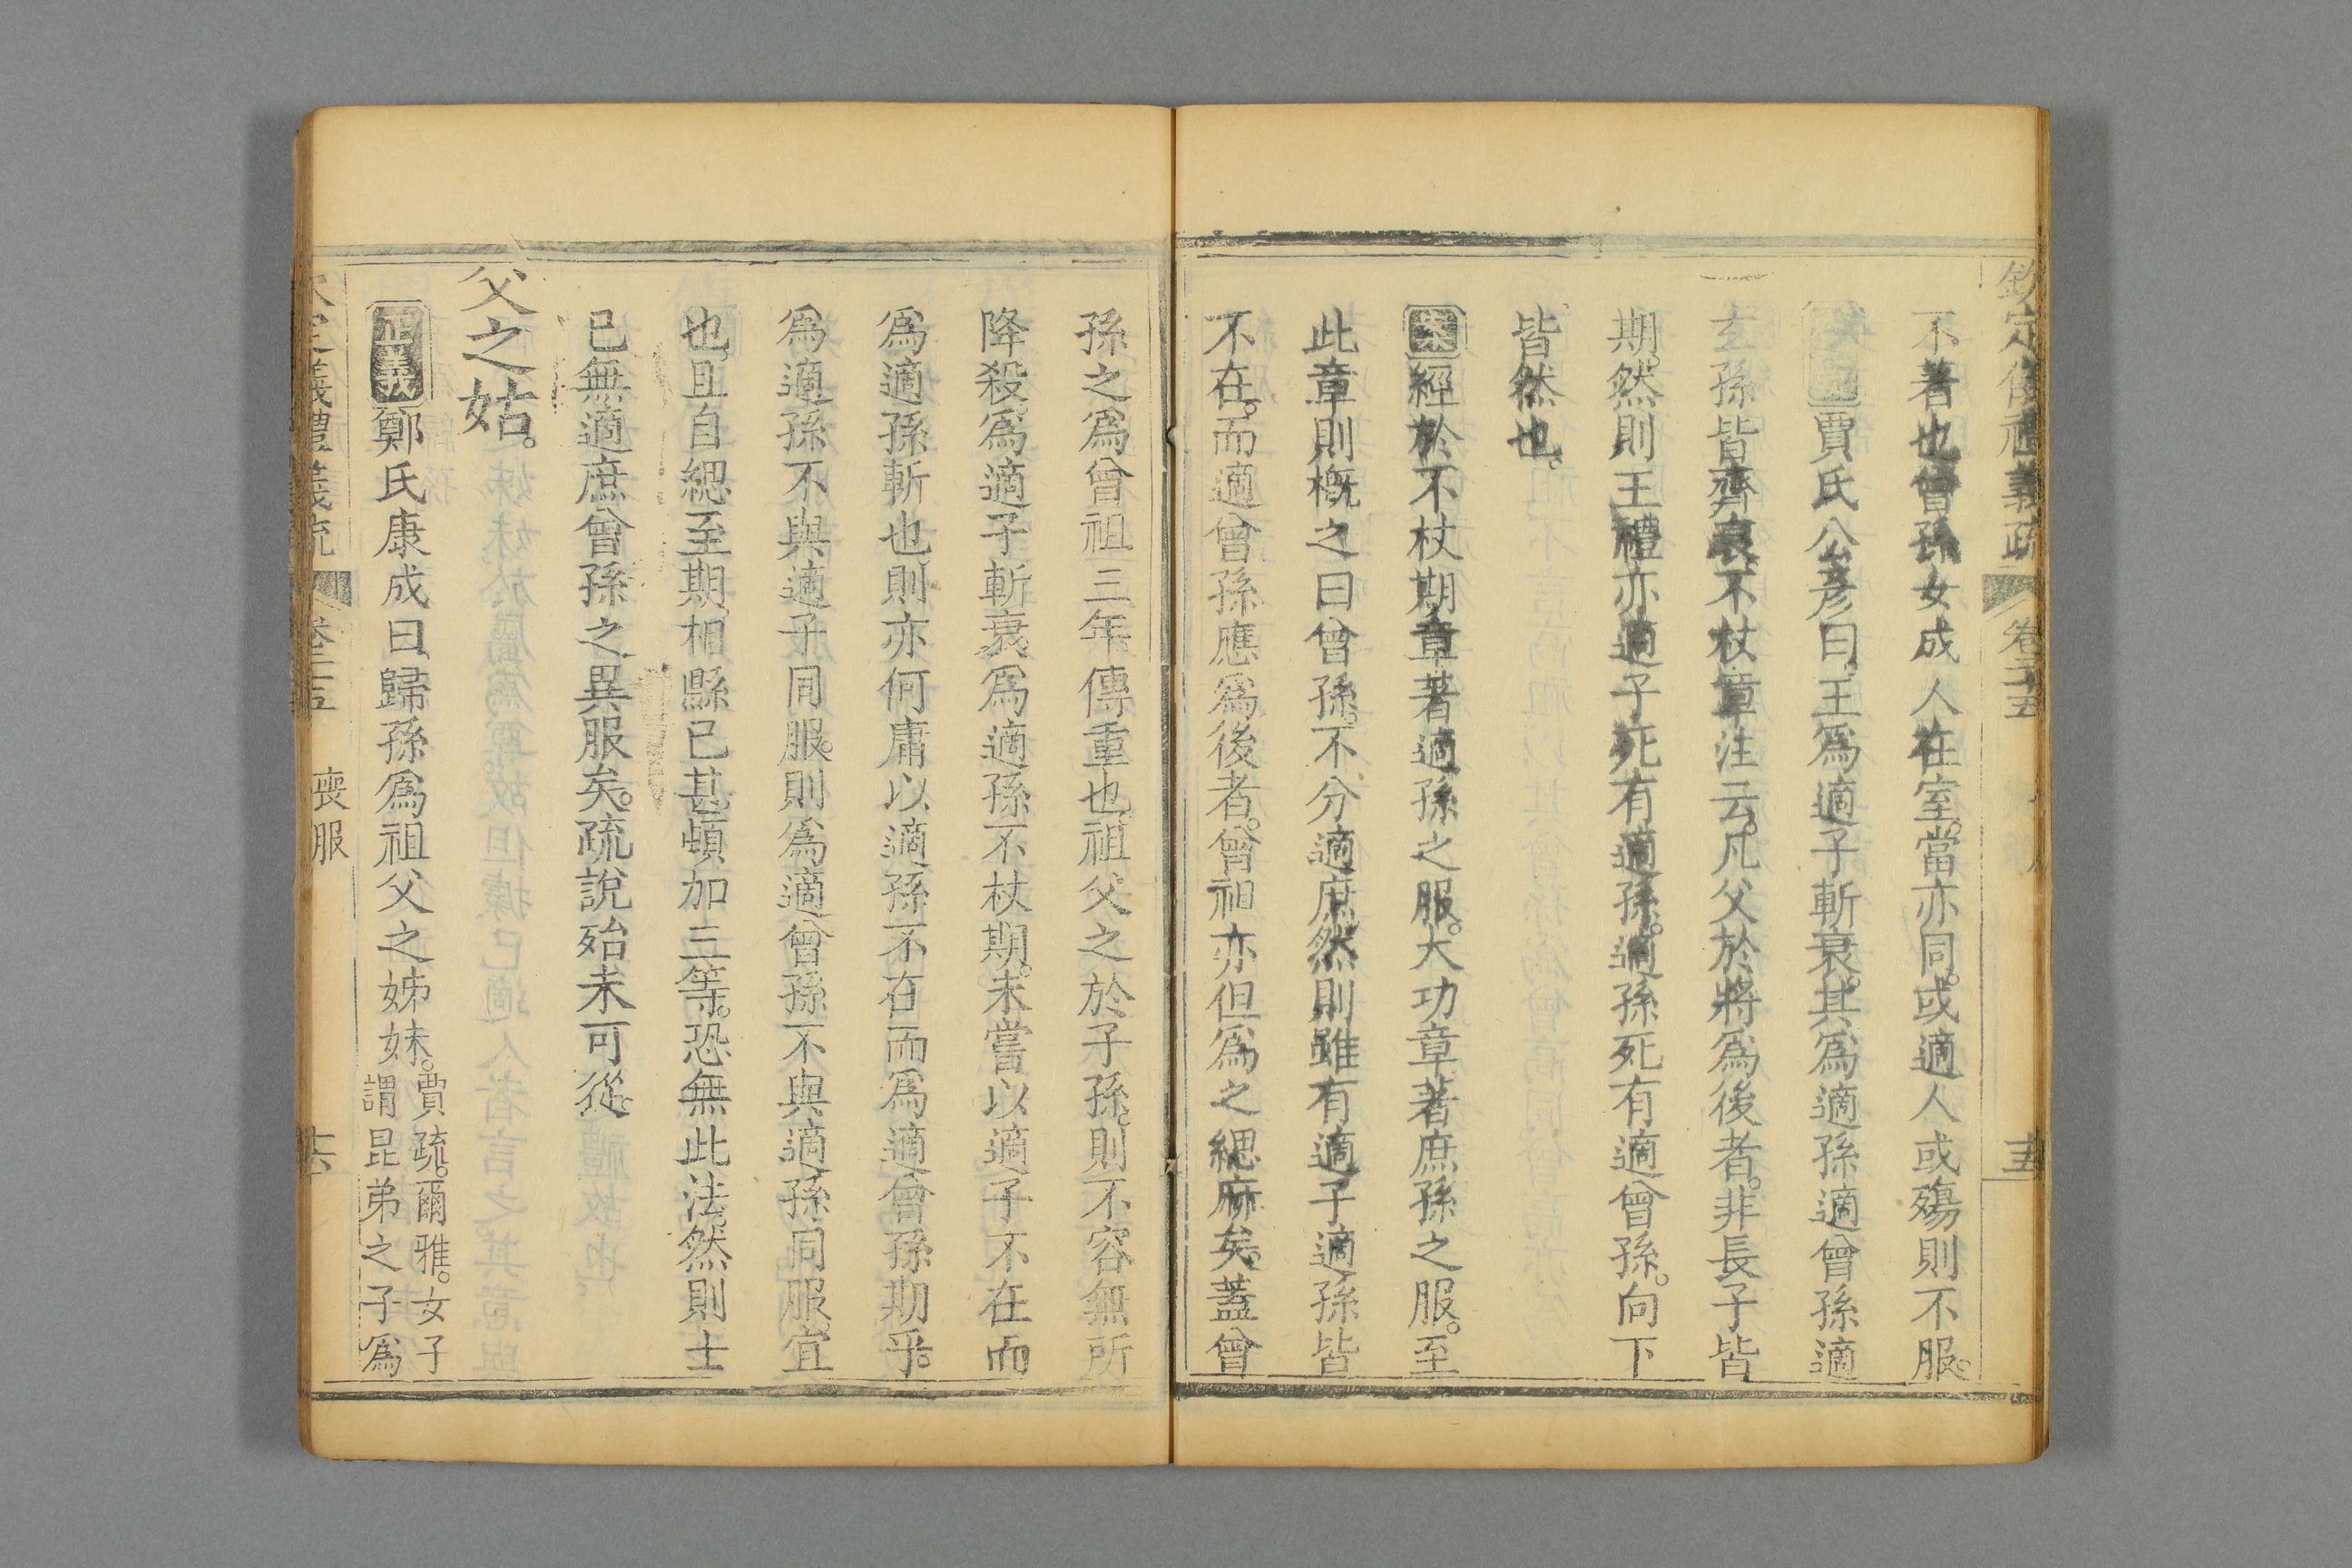 欽定儀禮義疏 卷二十五 十五
不著也曾孫女成人在室當亦同或適人或殤則不服
賈氏公彥曰王爲適子斬衰其爲適孫適曾孫適
玄孫皆齊衰不杖章注云凡父於將爲後者非長子皆
期然則王禮亦適子死有適孫適孫死有適曾孫向下
皆然也
案經於不杖期章著適孫之服大功章著庶孫之服至
此章則概之曰曾孫不分適庶然則雖有適子適孫皆
不在而適曾孫應爲後者曾祖亦但爲之緦麻矣蓋曾
孫之爲曾祖三年傳重也祖父之於子孫則不容無所
降殺爲適子斬衰爲適孫不杖期未嘗以適子不在而
爲適孫斬也則亦何庸以適孫不在而爲適曾孫期乎
爲適孫不與適子同服則爲適曾孫不與適孫同服宜
也且自緦至期相縣已甚頓加三等恐無此法然則士
已無適庶曾孫之異服矣疏說殆未可從
父之姑
正義鄭氏康成曰歸孫爲祖父之姊妹
賈疏爾雅女子
謂昆弟之子爲
欽定儀禮義疏 卷二十五 喪服 十六